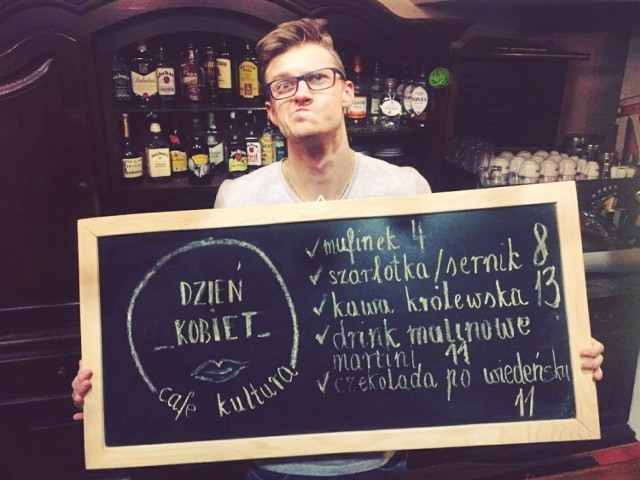 DZIEŃ
KOBIET
café kultura
✓ mufinek 4
✓ szarlotka/sernik 8
✓ kawa królewska 13
✓ drink malinowe
martini 11
✓ czekolada po wiedeńsku
11